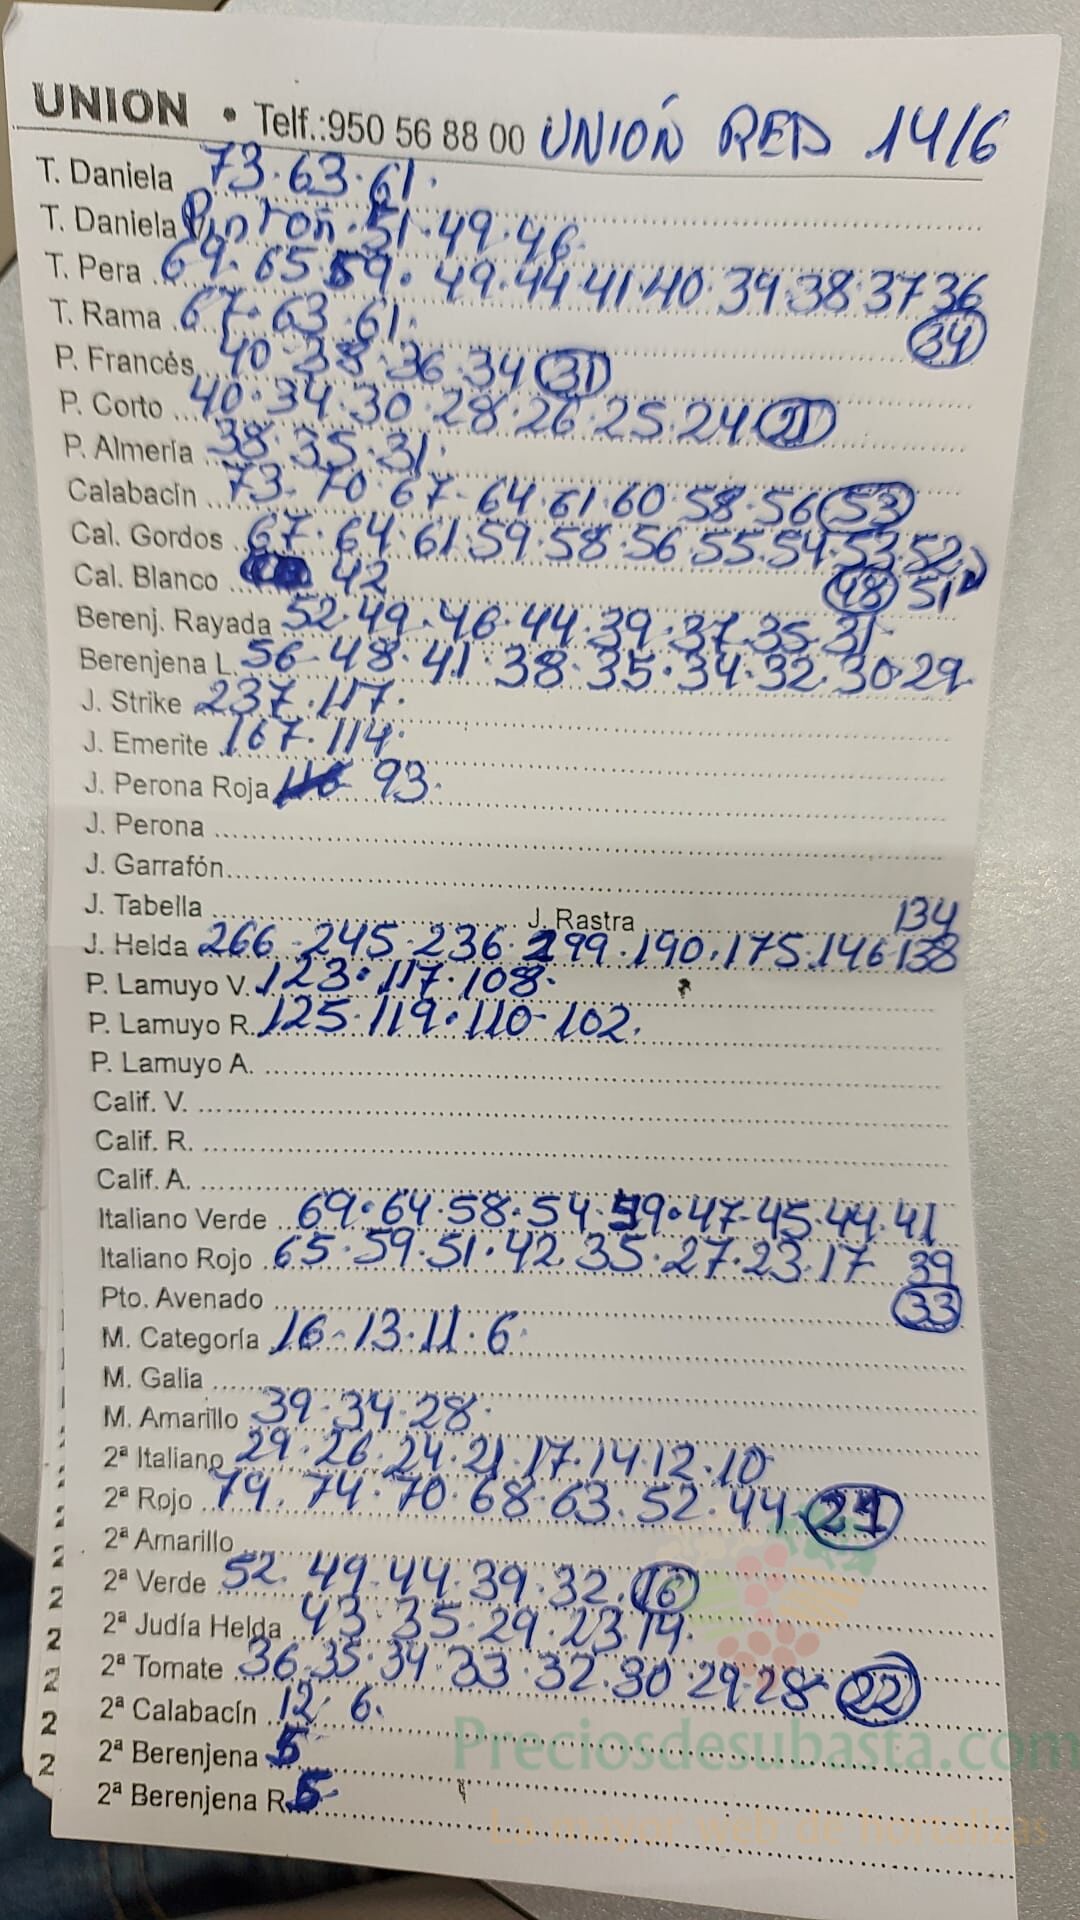 UNION • Telf.:950 56 88 00 UNIÓN RED 14/6
T. Daniela 73.63.61.
T. Daniela Pintón.51.49.46.
T. Pera 69.65.59.49.44.41.40.39.38.37 36
T. Rama 67.63.61. (34)
P. Francés 40.38.36.34 (31)
P. Corto 40.34.30.28.26.25.24 (21)
P. Almería 38.35.31.
Calabacín 73.70.67.64.61.60.58.56 (53)
Cal. Gordos 67.64.61.59.58.56.55.54.53.52
Cal. Blanco 42 (48) 51
Berenj. Rayada 52.49.46.44.39.37.35.31
Berenjena L. 56.48.41.38.35.34.32.30.29
J. Strike 237.117.
J. Emerite 167.114.
J. Perona Roja 93.
J. Perona
J. Garrafón
J. Tabella J. Rastra 134
J. Helda 266.245.236.199.190.175.146.138
P. Lamuyo V. 123.117.108.
P. Lamuyo R. 125.119.110.102.
P. Lamuyo A.
Calif. V.
Calif. R.
Calif. A.
Italiano Verde 69.64.58.54.49.47.45.44.41
Italiano Rojo 65.59.51.42.35.27.23.17 39
Pto. Avenado (33)
M. Categoría 16.13.11.6.
M. Galia
M. Amarillo 39.34.28.
2ª Italiano 29.26.24.21.17.14.12.10
2ª Rojo 79.74.70.68.63.52.44
2ª Amarillo
2ª Verde 52.49.44.39.32.(16)
2ª Judía Helda 43.35.29.23.19.
2ª Tomate 36.35.34.33.32.30.29.28 (22)
2ª Calabacín 12.6.
2ª Berenjena 5
2ª Berenjena R. 5
Preciosdesubasta.com
La mayor web de hortalizas